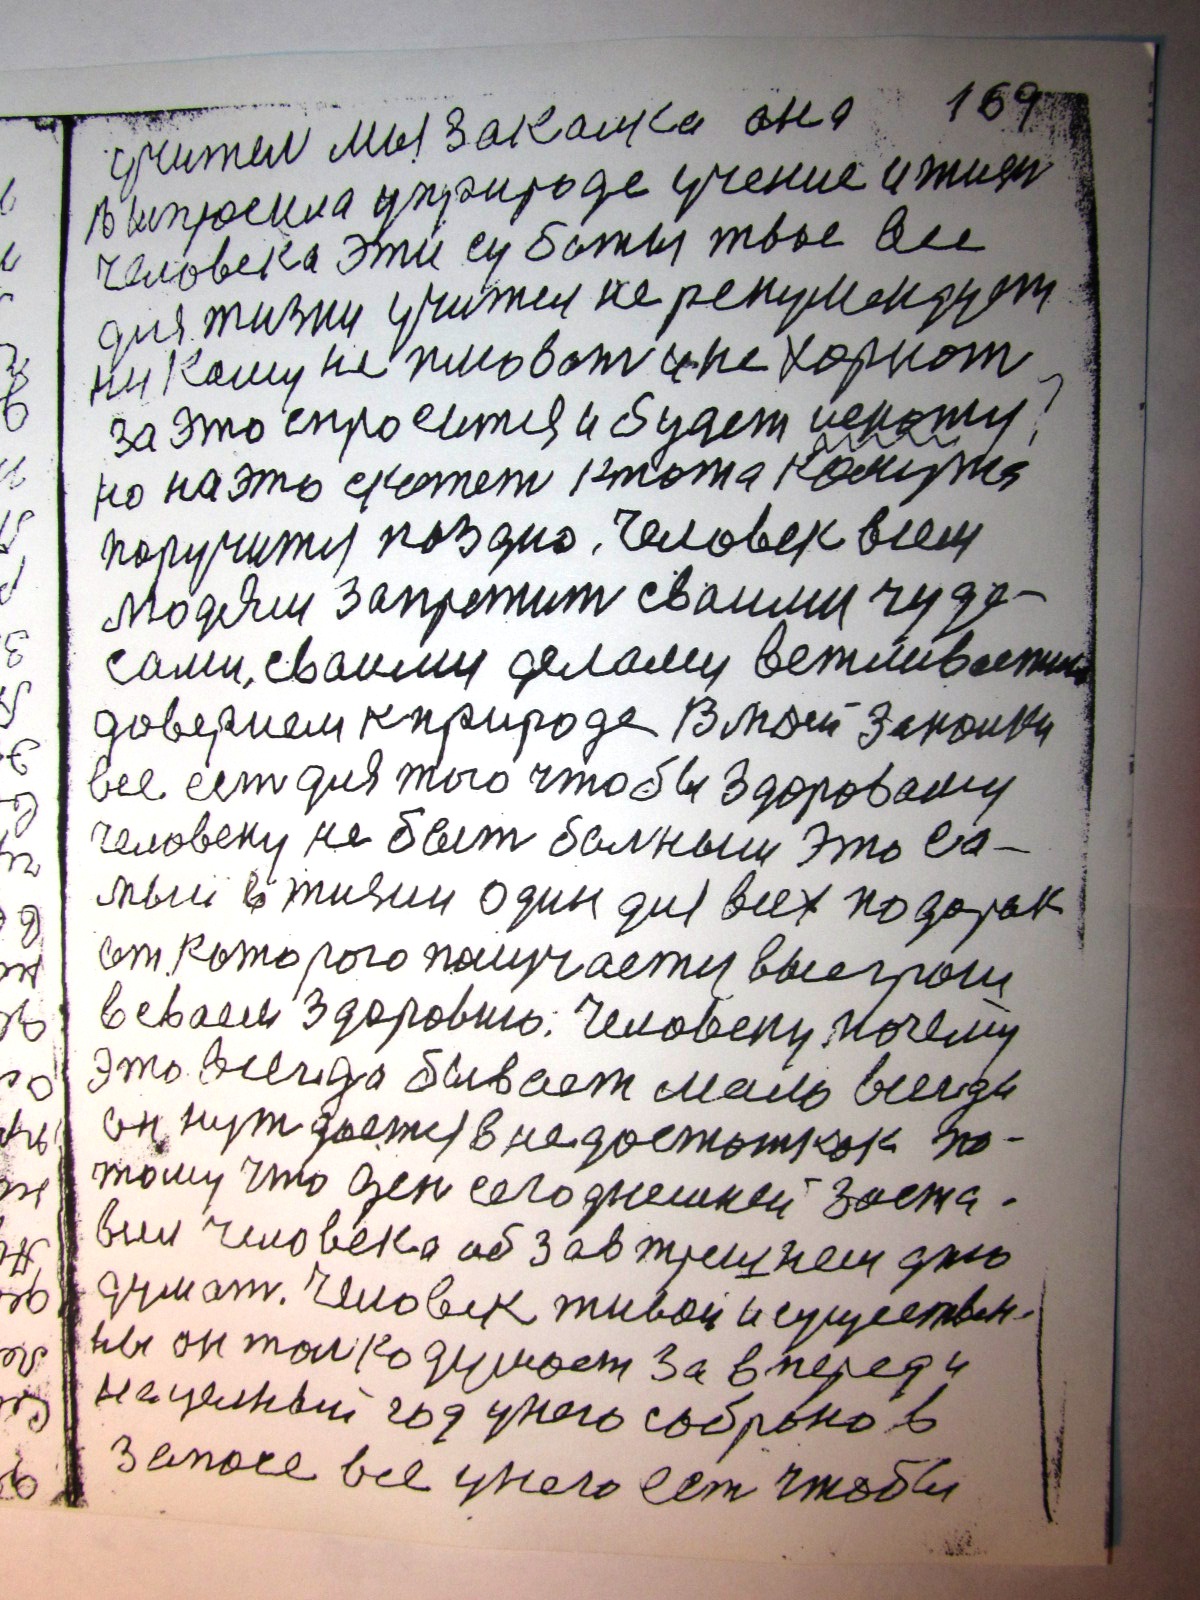 169
учител мыl закалка она
выпросила уприроде учение ижизн
человека эти суботы твое все
для жизни учител не рекумендует
ни кому не плюват ине харкат
за это спросится и будет
но на это скажет ктота
поручится поздно. Человек всем
людям запретит своими чуде-
сами, своими делами вежливостию
доверием к природе В моей закалки
все ест для того чтобы здоровому
человеку не быт болным это са-
мый в жизни один для всех подарак
от которого получаеться выеграш
в своем здоровию. Человеку почему
это всегда бывает мало всегда
он нуждается в недостатках по-
тому что ден сегоднешней заста-
вил человека об завтрешнем дню
думат. Человек живой и существен-
ны он толко думает за впереди
на целный год унего собрано в
запосе все унего ест чтобы